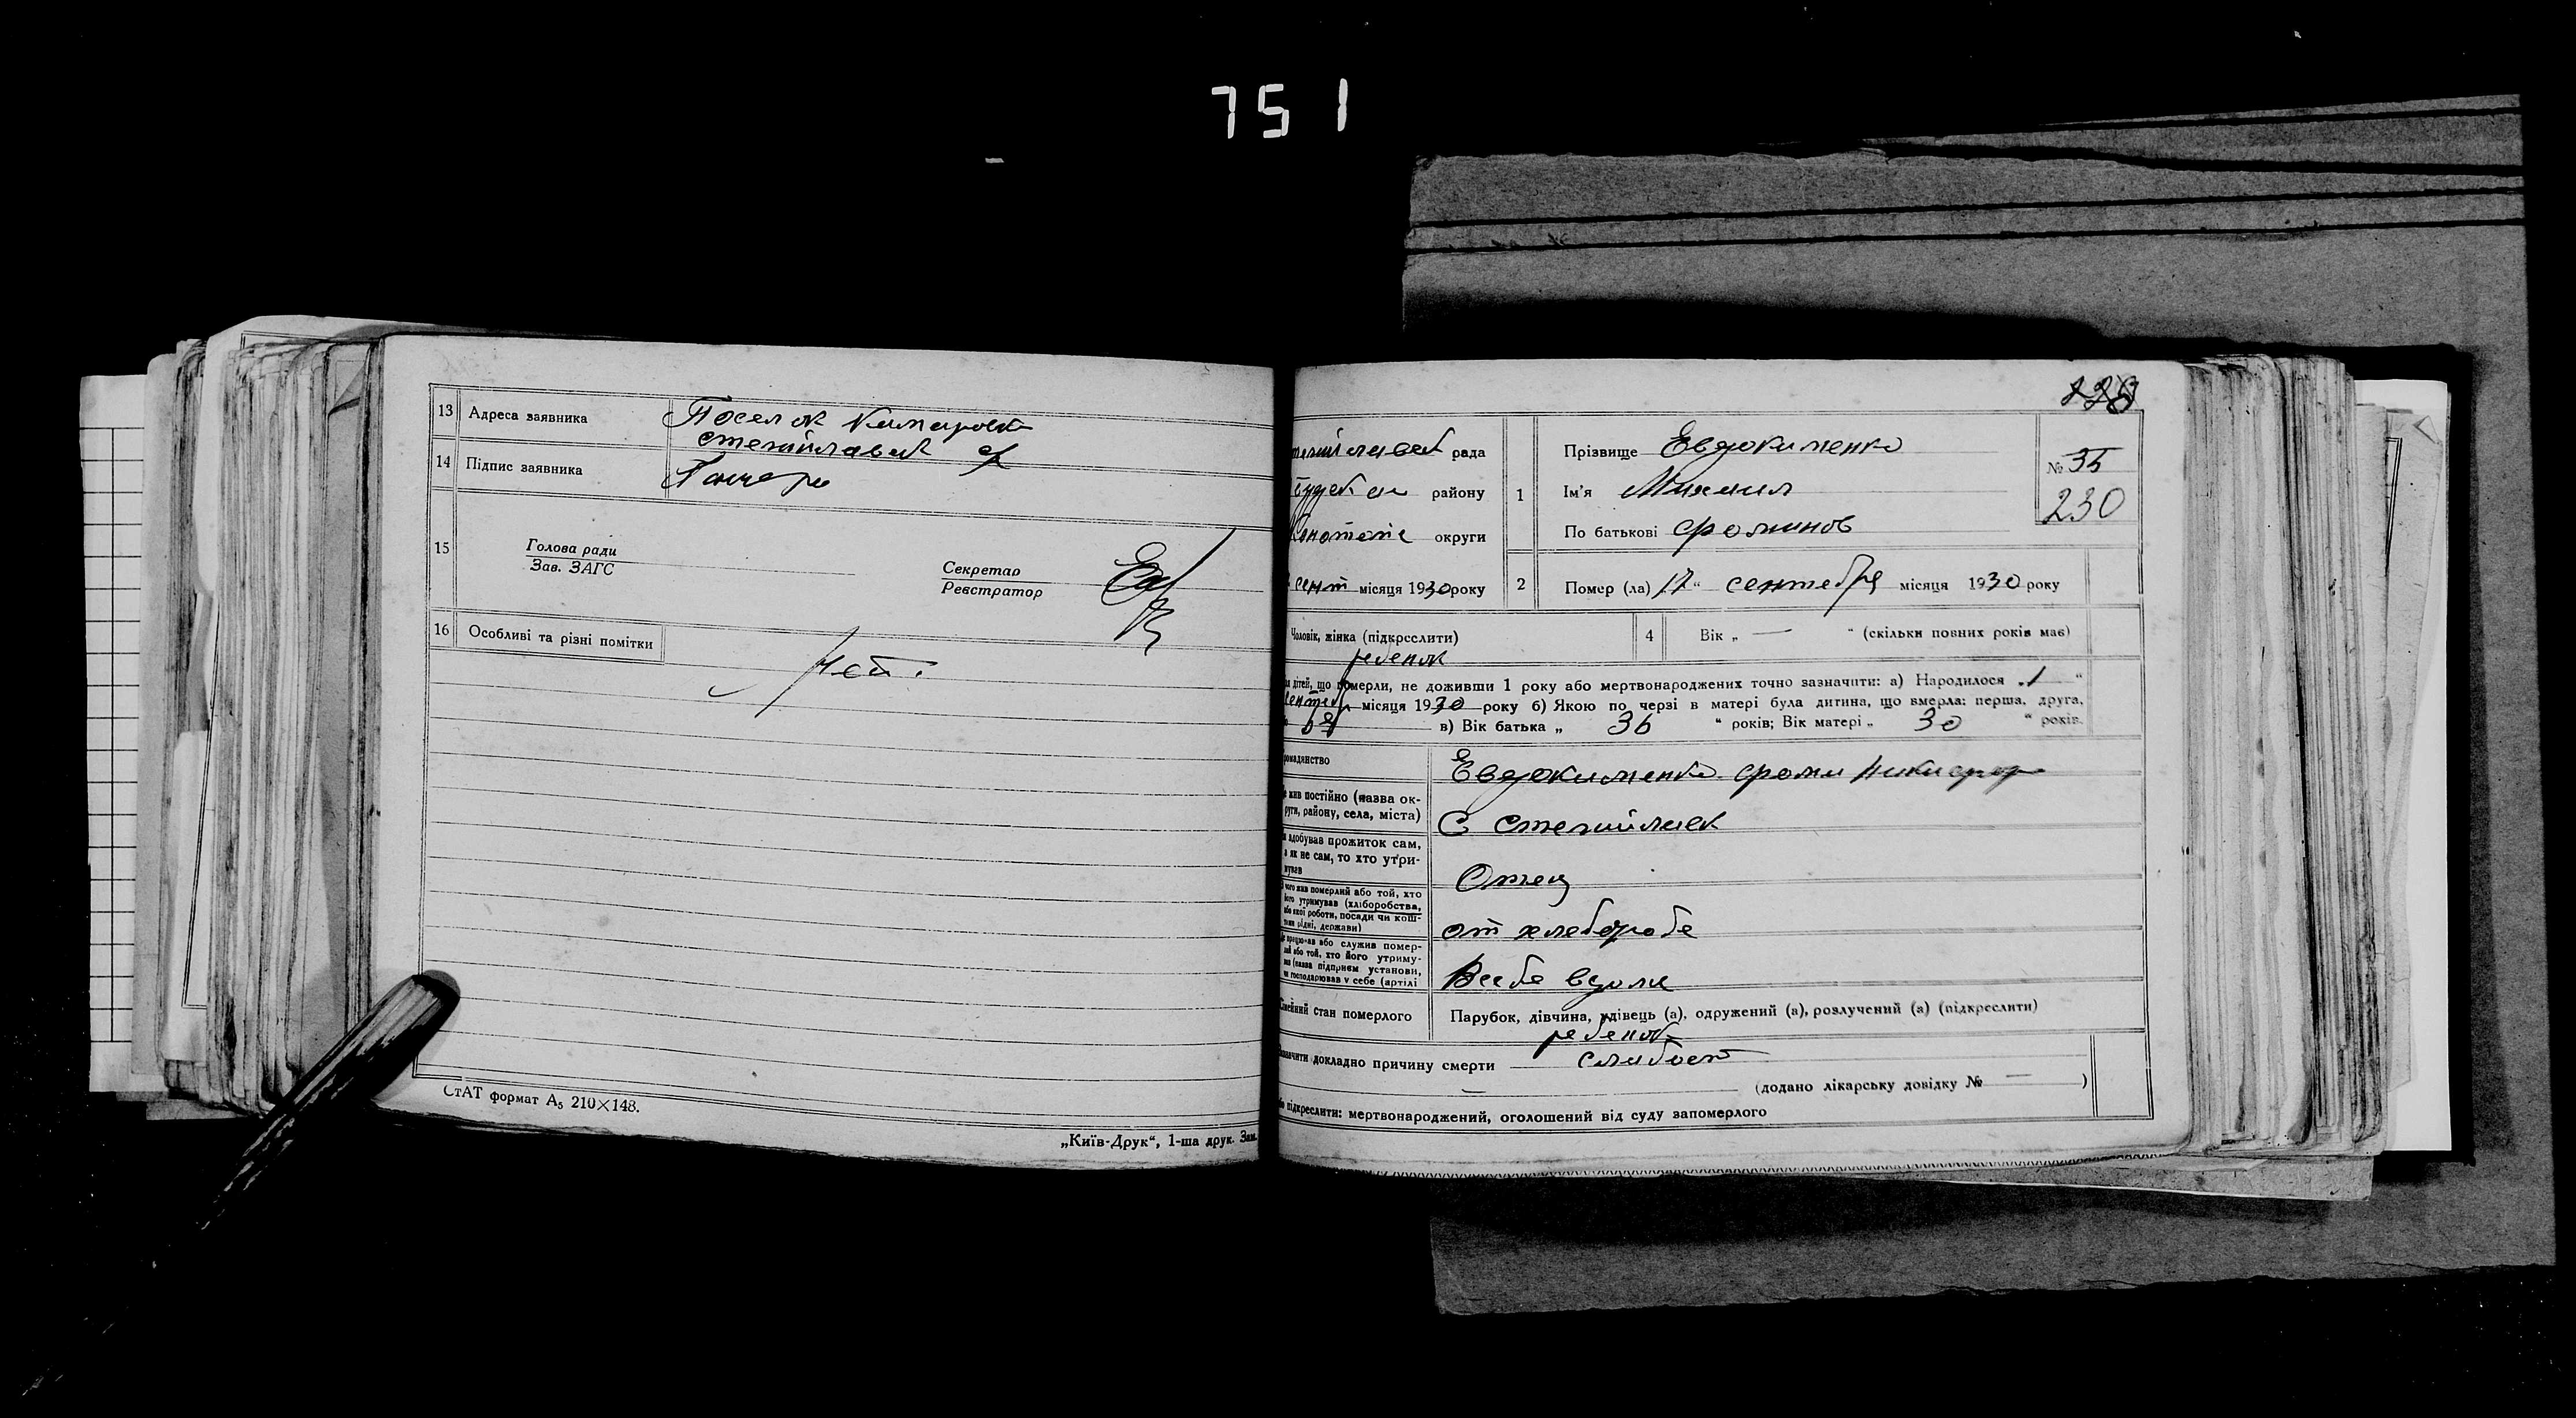 751
13 Адреса заявника Поселок
14 Підпис заявника
15 Голова ради
Зав. ЗАГС
Секретар
Реєстратор
16 Особливі та різні помітки
нет.
СтАТ формат А5 210×148.
„Київ-Друк“, 1-ша друк. Зам.
рада
району
округи
сент місяця 1930 року
1 Прізвище Евдокименко
Ім'я Михаил
По батькові Фоминов
№ 35
230
2 Помер (ла) 17 “ сентебре місяця 1930 року
Чоловік, жінка (підкреслити)
ребенок
4 Вік „ — “ (скільки повних років має)
дітей, що померли, не доживши 1 року або мертвонароджених точно зазначити: а) Народилося „1 “
місяця 1930 року б) Якою по черзі в матері була дитина, що вмерла: перша, друга,
в) Вік батька „ 36 “ років; Вік матері „ 30 “ років.
громадянство Евдокименко фоми
жив постійно (назва ок-
руги, району, села, міста) С
здобував прожиток сам,
а як не сам, то хто утри-
мував Отец
чого жив померлий або той, хто
його утримував (хліборобства,
або якої роботи, посади чи кош-
тами рідні, держави) от хлеборобе
працював або служив помер-
лий або той, хто його утриму-
вав (назва підприєм установи,
чи господарював у себе (артілі
Сімейний стан померлого Парубок, дівчина, удівець (а), одружений (а), розлучений (а) (підкреслити)
ребенок
Зазначити докладно причину смерти слабост
— (додано лікарську довідку № — )
або підкреслити: мертвонароджений, оголошений від суду запомерлого